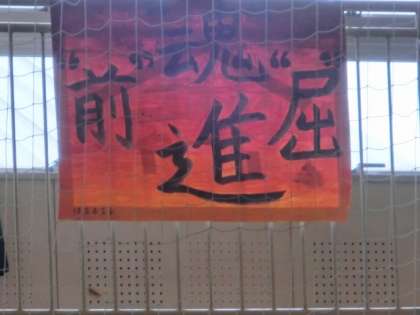 魂
“前” 進 “屈”